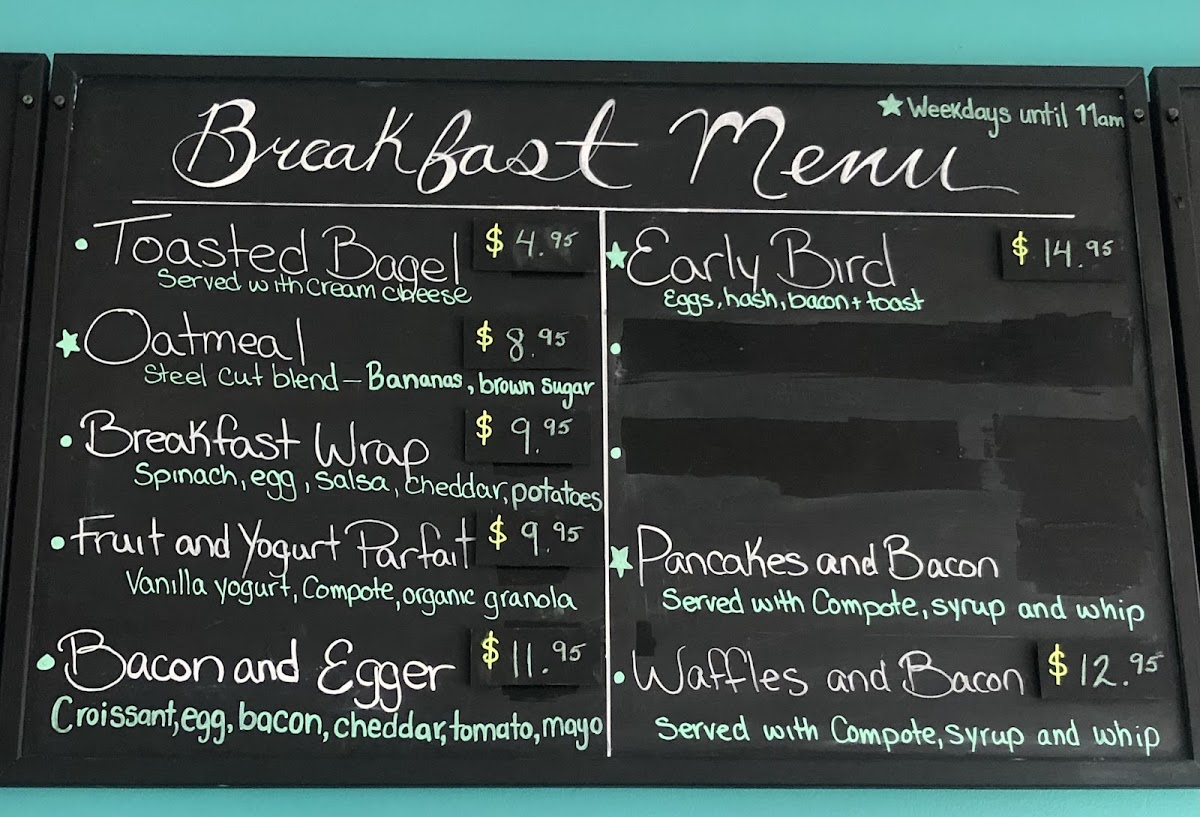 Breakfast Menu
★ Weekdays until 11am
• Toasted Bagel $ 4.95
Served with cream cheese
★ Oatmeal $ 8.95
Steel cut blend – Bananas, brown sugar
• Breakfast Wrap $ 9.95
Spinach, egg, salsa, cheddar, potatoes
• Fruit and Yogurt Parfait $ 9.95
Vanilla yogurt, Compote, organic granola
• Bacon and Egger $ 11.95
Croissant, egg, bacon, cheddar, tomato, mayo
★ Early Bird $ 14.95
Eggs, hash, bacon + toast
•
•
★ Pancakes and Bacon
Served with Compote, syrup and whip
• Waffles and Bacon $ 12.95
Served with Compote, syrup and whip